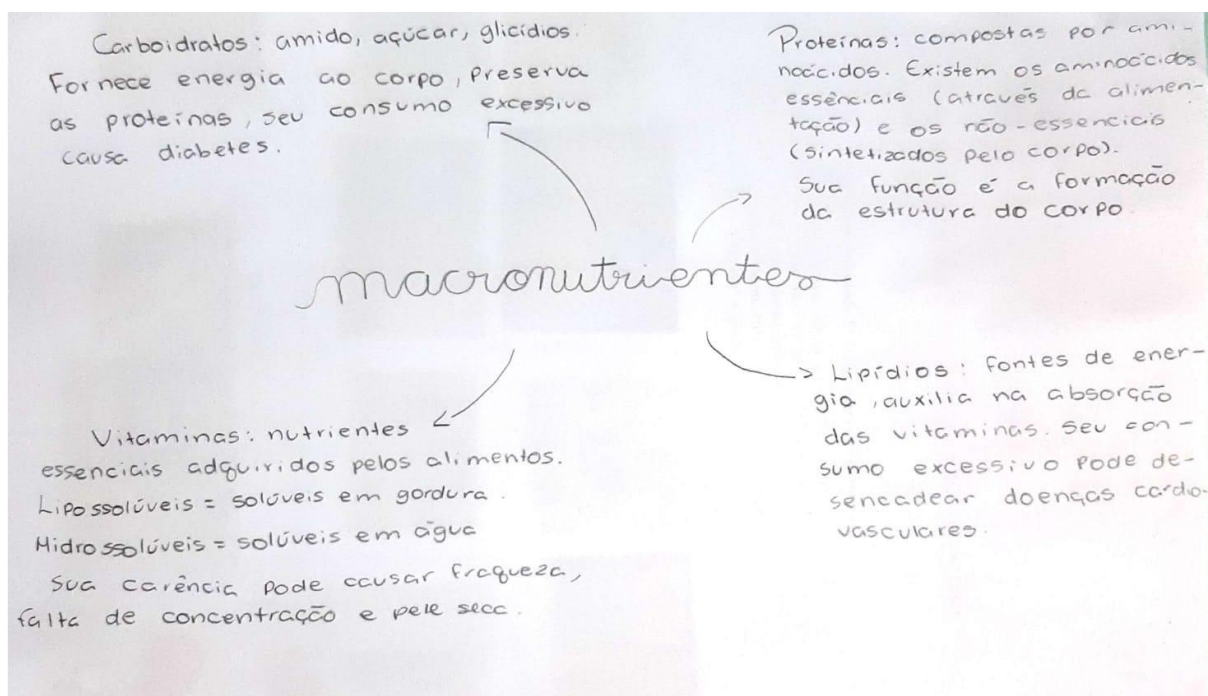 Carboidratos: amido, açúcar, glicídios.
Fornece energia ao corpo, preserva
as proteínas, seu consumo excessivo
causa diabetes.
Proteínas: compostas por ami-
noácidos. Existem os aminoácidos
essênciais (através da alimen-
tação) e os não-essenciais
(sintetizados pelo corpo).
Sua função é a formação
da estrutura do corpo.
macronutrientes
Vitaminas: nutrientes
essenciais adquiridos pelos alimentos.
Lipossolúveis = solúveis em gordura.
Hidrossolúveis = solúveis em água
Sua carência pode causar fraqueza,
falta de concentração e pele seca.
Lipídios: fontes de ener-
gia, auxilia na absorção
das vitaminas. Seu con-
sumo excessivo pode de-
sencadear doenças cardio-
vasculares.